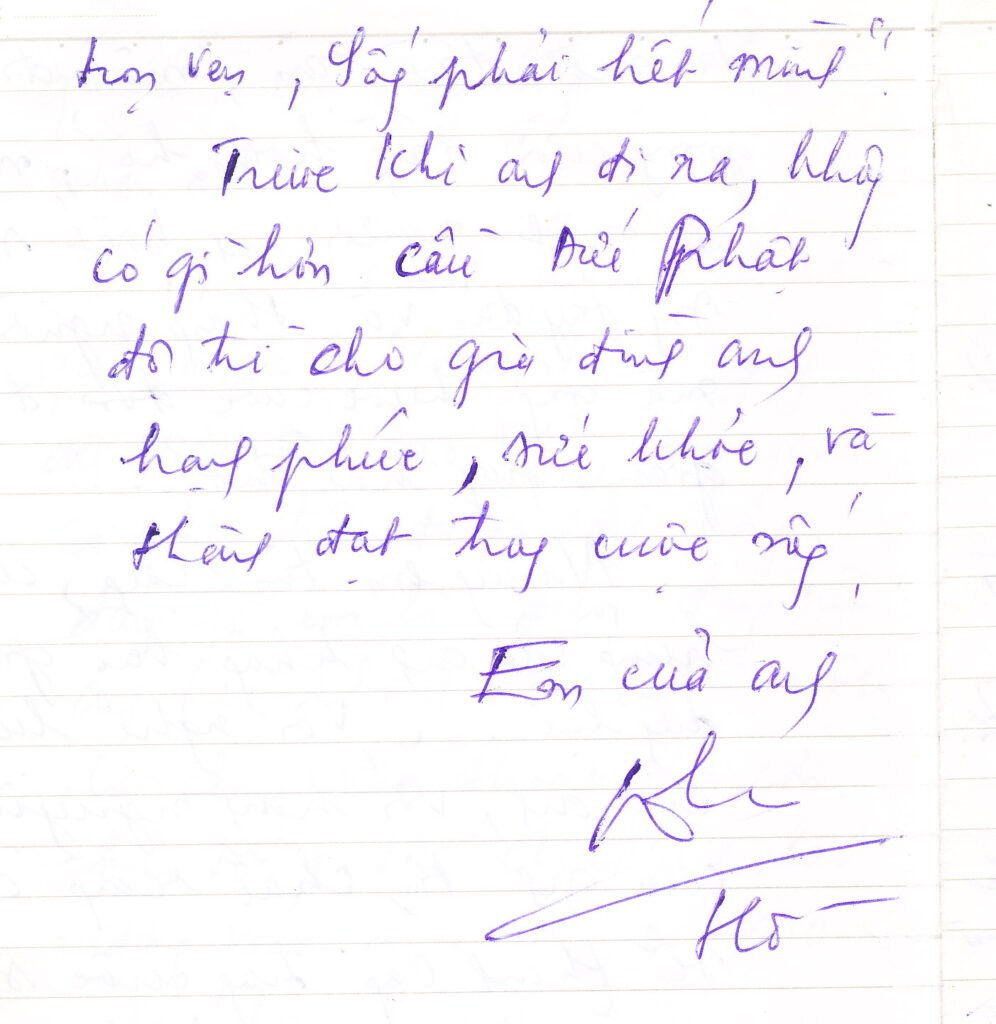 trọn vẹn, sống phải hết mình".
Trước khi anh đi xa, không
có gì hơn cầu Phật
độ trì cho gia đình anh
hạnh phúc, sức khỏe, và
thành đạt trong cuộc sống.
Em của anh